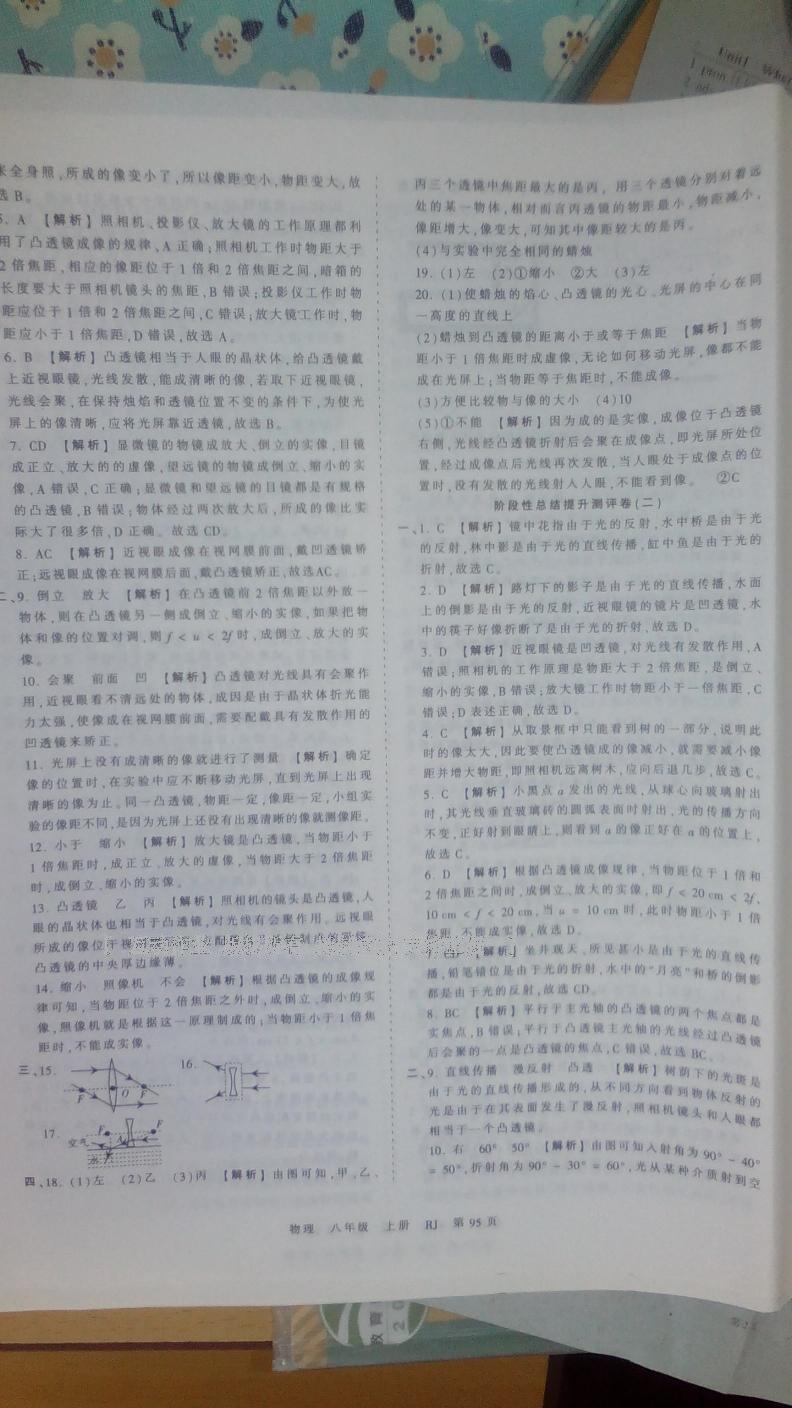 Unit1
来全身照,所成的像变小了,所以像距变小,物距变大,故
选 B。
5. A 【解析】照相机、投影仪、放大镜的工作原理都利
用了凸透镜成像的规律,A 正确;照相机工作时物距大于
2 倍焦距,相应的像距位于 1 倍和 2 倍焦距之间,暗箱的
长度要大于照相机镜头的焦距,B 错误;投影仪工作时物
距应位于 1 倍和 2 倍焦距之间,C 错误;放大镜工作时,物
距应小于 1 倍焦距,D 错误,故选 A。
6. B 【解析】凸透镜相当于人眼的晶状体,给凸透镜戴
上近视眼镜,光线发散,能成清晰的像,若取下近视眼镜,
光线会聚,在保持烛焰和透镜位置不变的条件下,为使光
屏上的像清晰,应将光屏靠近透镜,故选 B。
7. CD 【解析】显微镜的物镜成放大、倒立的实像,目镜
成正立、放大的的虚像,望远镜的物镜成倒立、缩小的实
像,A 错误,C 正确;显微镜和望远镜的目镜都是有规格
的凸透镜,B 错误;物体经过两次放大后,所成的像比实
际大了很多倍,D 正确。故选 CD。
8. AC 【解析】近视眼成像在视网膜前面,戴凹透镜矫
正;远视眼成像在视网膜后面,戴凸透镜矫正,故选AC。
二、9. 倒立 放大 【解析】在凸透镜前 2 倍焦距以外放一
物体,则在凸透镜另一侧成倒立、缩小的实像,如果把物
体和像的位置对调,则 f < u < 2f 时,成倒立、放大的实
像。
10. 会聚 前面 凹 【解析】凸透镜对光线具有会聚作
用,近视眼看不清远处的物体,成因是由于晶状体折光能
力太强,使像成在视网膜前面,需要配戴具有发散作用的
凹透镜来矫正。
11. 光屏上没有成清晰的像就进行了测量 【解析】确定
像的位置时,在实验中应不断移动光屏,直到光屏上出现
清晰的像为止。同一凸透镜,物距一定,像距一定,小组实
验的像距不同,是因为光屏上还没有出现清晰的像就测像距。
12. 小于 缩小 【解析】放大镜是凸透镜,当物距小于
1 倍焦距时,成正立、放大的虚像,当物距大于 2 倍焦距
时,成倒立、缩小的实像。
13. 凸透镜 乙 丙 【解析】照相机的镜头是凸透镜,人
眼的晶状体也相当于凸透镜,对光线有会聚作用。远视眼
所成的像位于视
凸透镜的中央厚边缘薄。
14. 缩小 照像机 不会 【解析】根据凸透镜的成像规
律可知,当物距位于 2 倍焦距之外时,成倒立、缩小的实
像,照像机就是根据这一原理制成的;当物距小于 1 倍焦
距时,不能成实像。
三、15.
F O F
16.
17.
F F
空气 A
水
四、18. (1)左 (2)乙 (3)丙 【解析】由图可知,甲、乙、
丙三个透镜中焦距最大的是丙, 用三个透镜分别对着远
处的某一物体,相对而言丙透镜的物距最小,物距减小,
像距增大,像变大,可知其中像距较大的是丙。
(4)与实验中完全相同的蜡烛
19. (1)左 (2)①缩小 ②大 (3)左
20. (1)使蜡烛的焰心、凸透镜的光心、光屏的中心在同
一高度的直线上
(2)蜡烛到凸透镜的距离小于或等于焦距 【解析】当物
距小于 1 倍焦距时成虚像,无论如何移动光屏,像都不能
成在光屏上;当物距等于焦距时,不能成像。
(3)方便比较物与像的大小 (4)10
(5)①不能 【解析】因为成的是实像,成像位于凸透镜
右侧,光线经凸透镜折射后会聚在成像点,即光屏所处位
置,经过成像点后光线再次发散,当人眼处于成像点的位
置时,没有发散的光线射入人眼,不能看到像。 ②C
阶段性总结提升测评卷(二)
一、1. C 【解析】镜中花指由于光的反射,水中桥是由于光
的反射,林中影是由于光的直线传播,缸中鱼是由于光的
折射,故选 C。
2. D 【解析】路灯下的影子是由于光的直线传播,水面
上的倒影是由于光的反射,近视眼镜的镜片是凹透镜,水
中的筷子好像折断了是由于光的折射,故选 D。
3. D 【解析】近视眼镜是凹透镜,对光线有发散作用,A
错误;照相机的工作原理是物距大于 2 倍焦距,是倒立、
缩小的实像,B 错误;放大镜工作时物距小于一倍焦距,C
错误;D 表述正确,故选 D。
4. C 【解析】从取景框中只能看到树的一部分,说明此
时的像太大,因此要使凸透镜成的像减小,就需要减小像
距并增大物距,即照相机远离树木,应向后退几步,故选 C。
5. C 【解析】小黑点 a 发出的光线,从球心向玻璃射出
时,其光线垂直玻璃砖的圆弧表面时射出,光的传播方向
不变,正好射到眼睛上,则看到 a 的像正好在 a 的位置上,
故选 C。
6. D 【解析】根据凸透镜成像规律,当物距位于 1 倍和
2 倍焦距之间时,成倒立、放大的实像,即 f < 20 cm < 2f,
10 cm < f < 20 cm,当 u = 10 cm 时,此时物距小于 1 倍
焦距,不能成实像,故选 D。
【解析】坐井观天、所见甚小是由于光的直线传
播,铅笔错位是由于光的折射,水中的“月亮”和桥的倒影
都是由于光的反射,故选 CD。
8. BC 【解析】平行于主光轴的凸透镜的两个焦点都是
实焦点,B 错误;平行于凸透镜主光轴的光线经过凸透镜
后会聚的一点是凸透镜的焦点,C 错误,故选 BC。
二、9. 直线传播 漫反射 凸透 【解析】树荫下的光斑是
由于光的直线传播形成的,从不同方向看到物体反射的
光是由于在其表面发生了漫反射,照相机镜头和人眼都
相当于一个凸透镜。
10. 右 60° 50° 【解析】由图可知入射角为 90° − 40°
= 50°,折射角为 90° − 30° = 60°,光从某种介质射到空
物理 八年级 上册 RJ 第 95 页